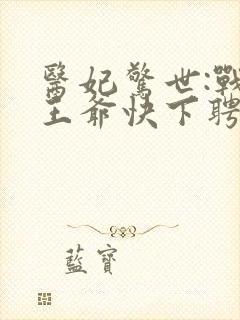 醫妃驚世:戰
王爺快下聘
藍寶